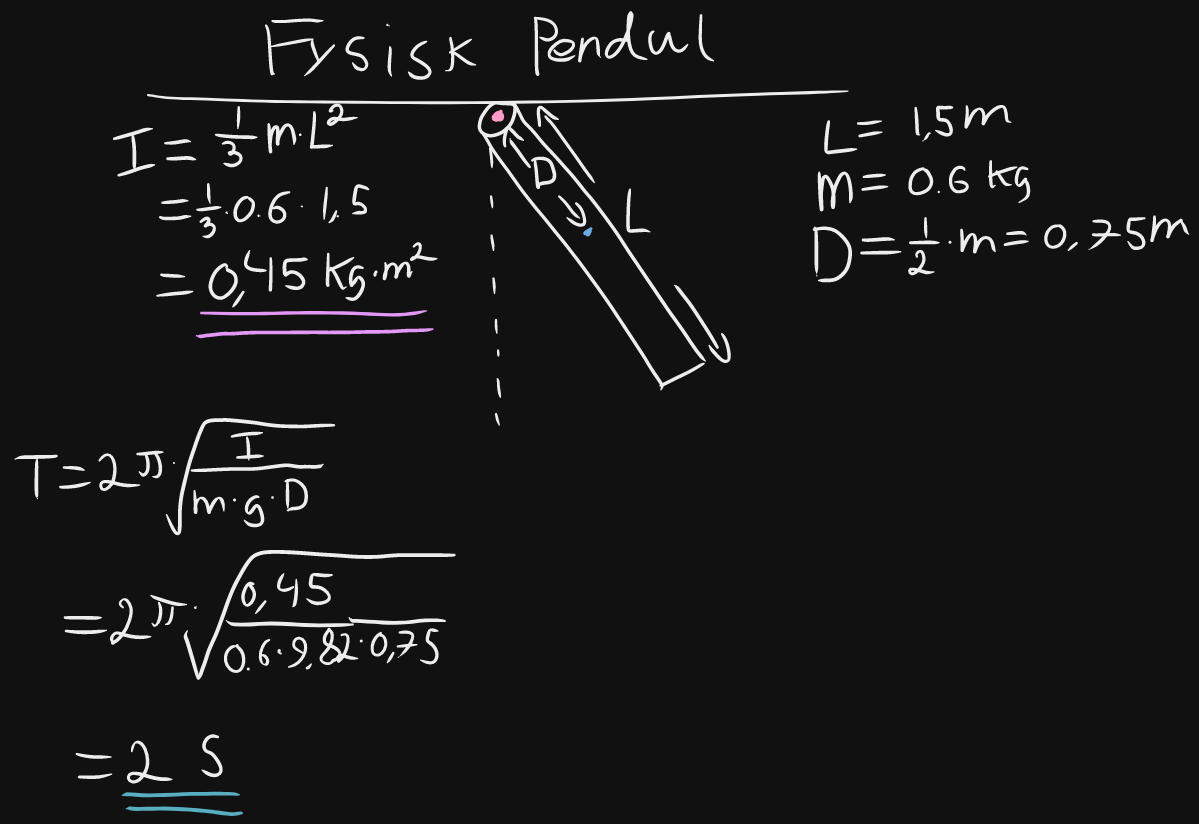 Fysisk Pendul
I = 1/3 m·L²
= 1/3·0.6·1,5
= 0,45 Kg·m²
D
L
L = 1,5m
m = 0.6 kg
D = 1/2·m = 0,75m
T = 2π·√(I/(m·g·D))
= 2π·√(0,45/(0.6·9,82·0,75))
= 2 S